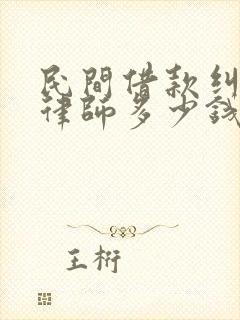 民間借款糾
律師多少錢
王桁